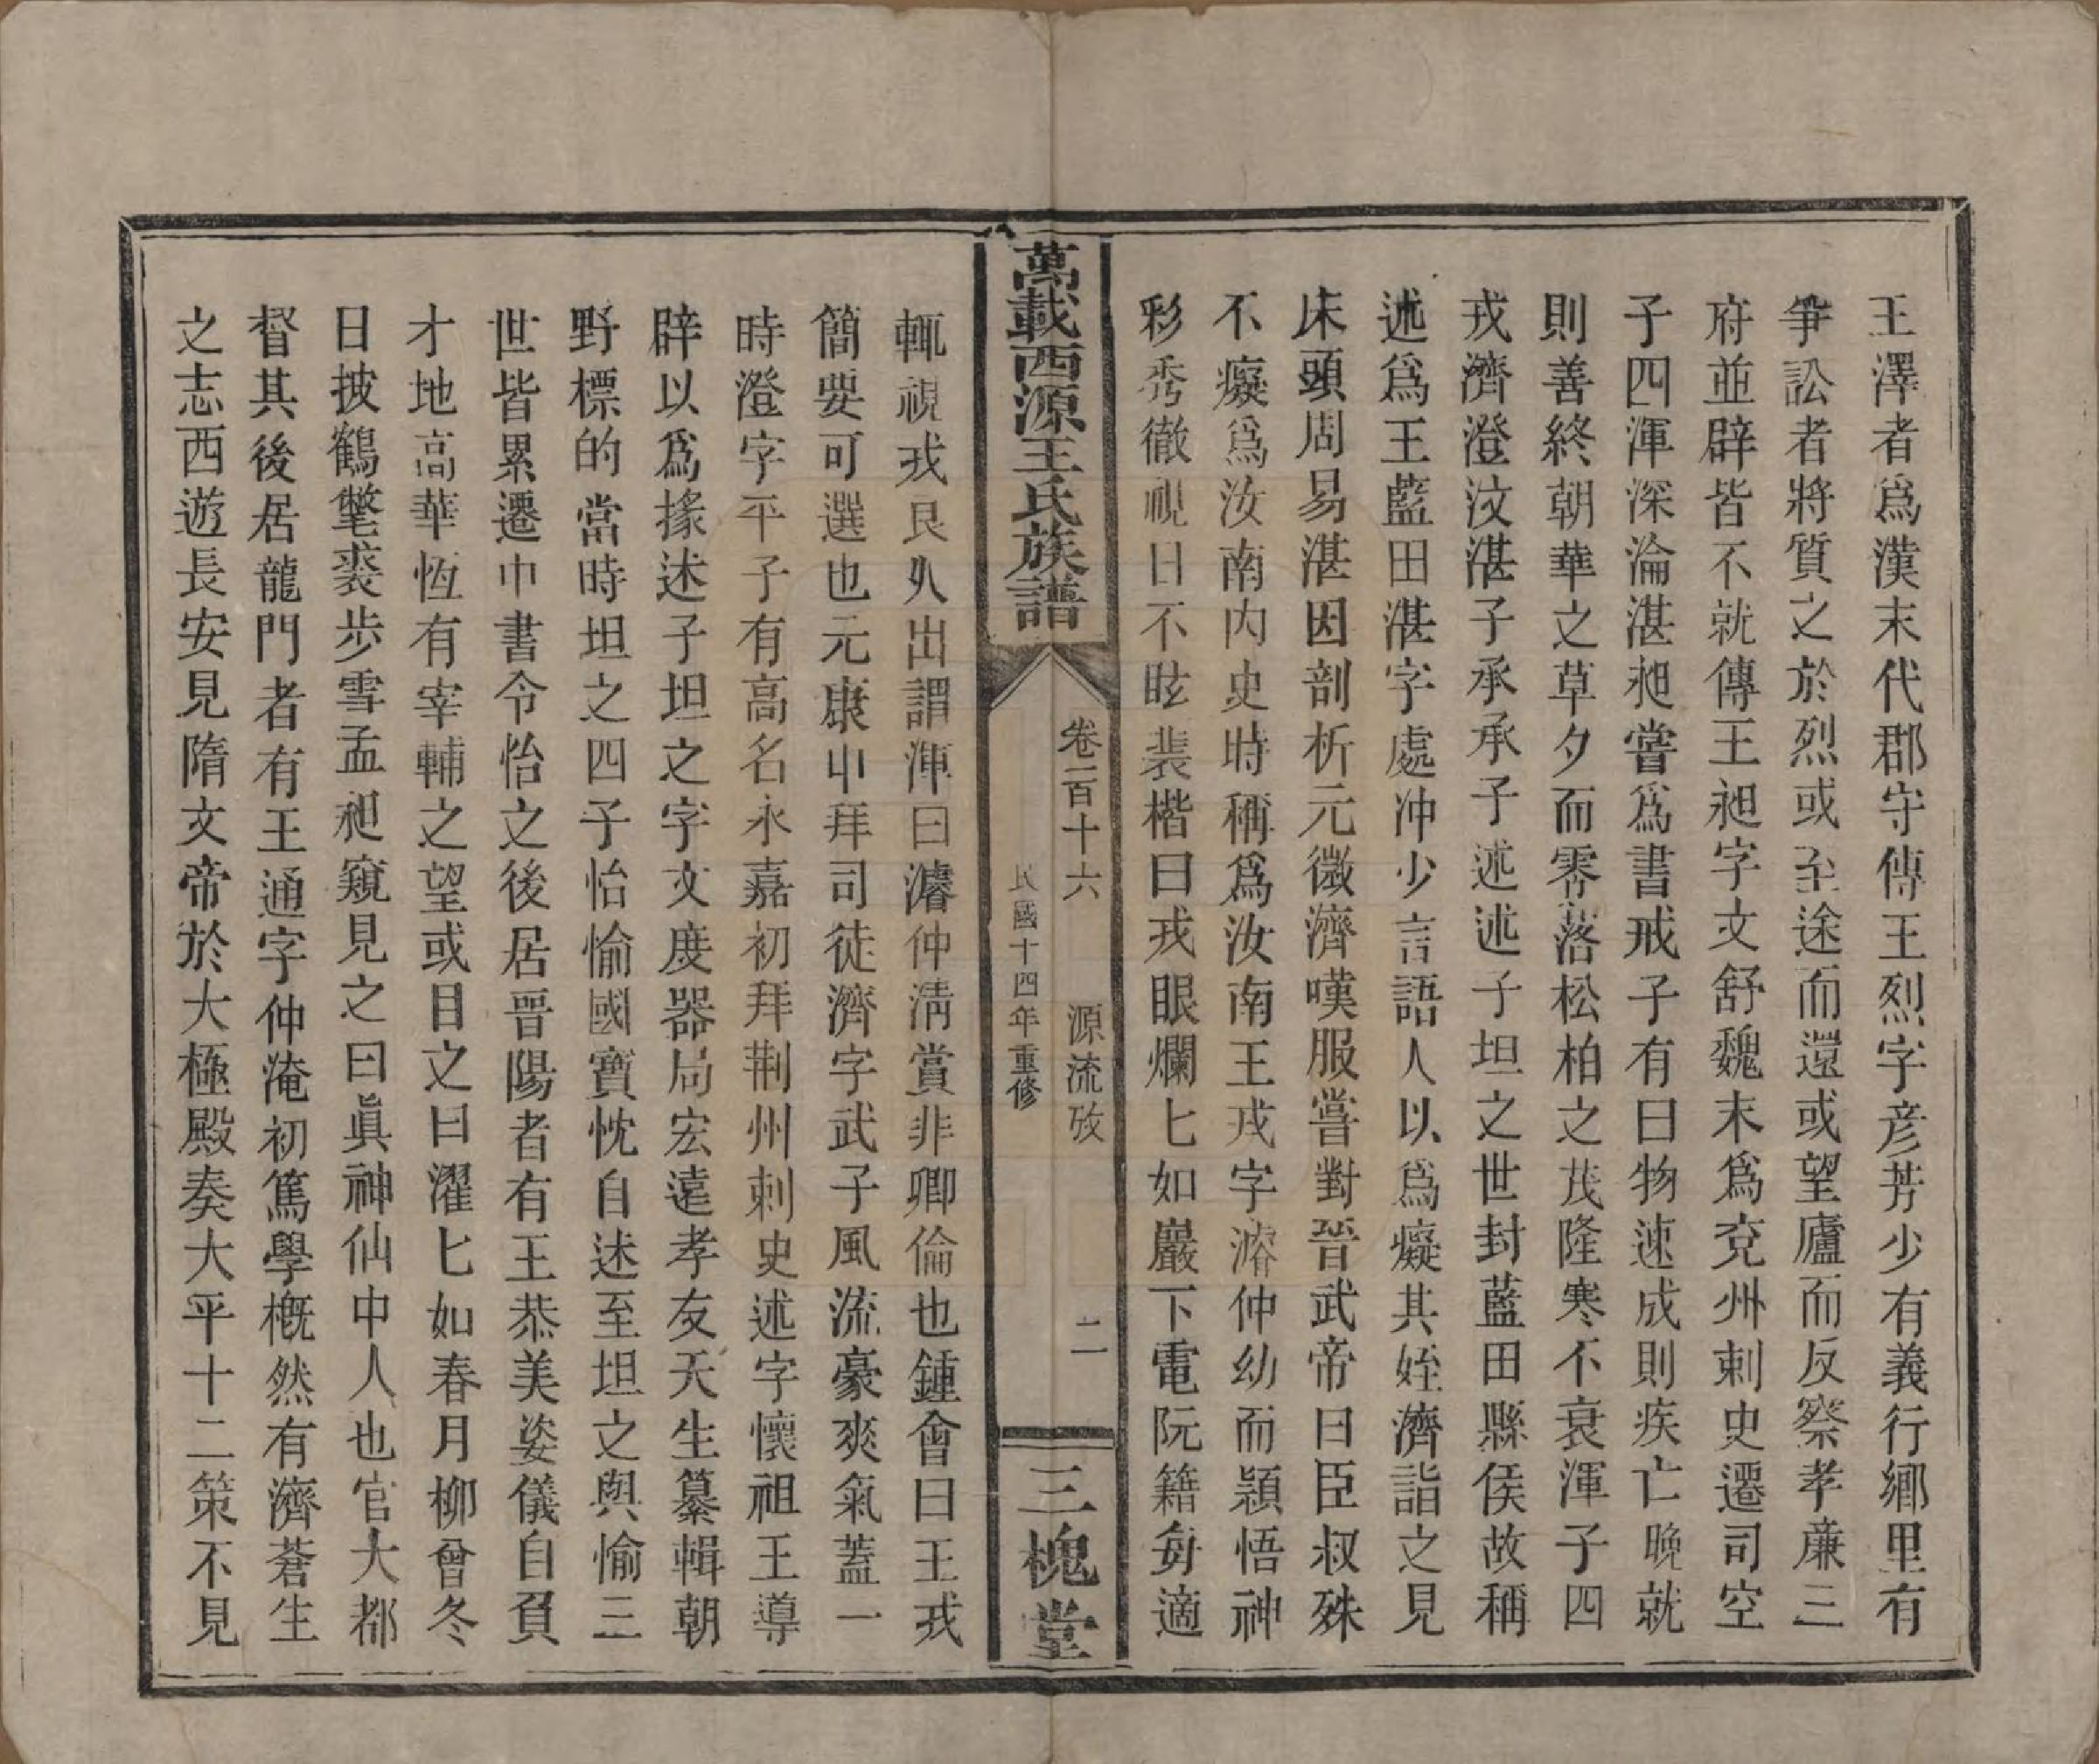 王澤者爲漢末代郡守傳王烈字彥芳少有義行鄉里有
爭訟者將質之於烈或至途而還或望廬而反察孝廉三
府並辟皆不就傳王昶字文舒魏末爲兗州刺史遷司空
子四渾深淪湛昶嘗爲書戒子有曰物速成則疾亡晚就
則善終朝華之草夕而零落松柏之茂隆寒不衰渾子四
戎濟澄汶湛子承承子述述子坦之世封藍田縣侯故稱
述爲王藍田湛字處冲少言語人以爲癡其姪濟詣之見
床頭周易湛因剖析元微濟嘆服嘗對晉武帝曰臣叔殊
不癡爲汝南內史時稱爲汝南王戎字濬仲幼而穎悟神
彩秀徹視日不眩裴楷曰戎眼爛匕如巖下電阮籍每適
萬載西源王氏族譜
卷二百十六 源流攷 二
民國十四年重修
三槐堂
輒視戎良久出謂渾曰濬仲淸賞非卿倫也鍾會曰王戎
簡要可選也元康中拜司徒濟字武子風流豪爽氣蓋一
時澄字平子有高名永嘉初拜荆州刺史述字懷祖王導
辟以爲掾述子坦之字文度器局宏遠孝友天生纂輯朝
野標的當時坦之四子怡愉國寶忱自述至坦之與愉三
世皆累遷中書令怡之後居晉陽者有王恭美姿儀自負
才地高華恆有宰輔之望或目之曰濯匕如春月柳曾冬
日披鶴氅裘步雪孟昶窺見之曰眞神仙中人也官大都
督其後居龍門者有王通字仲淹初篤學槪然有濟蒼生
之志西遊長安見隋文帝於大極殿奏大平十二策不見